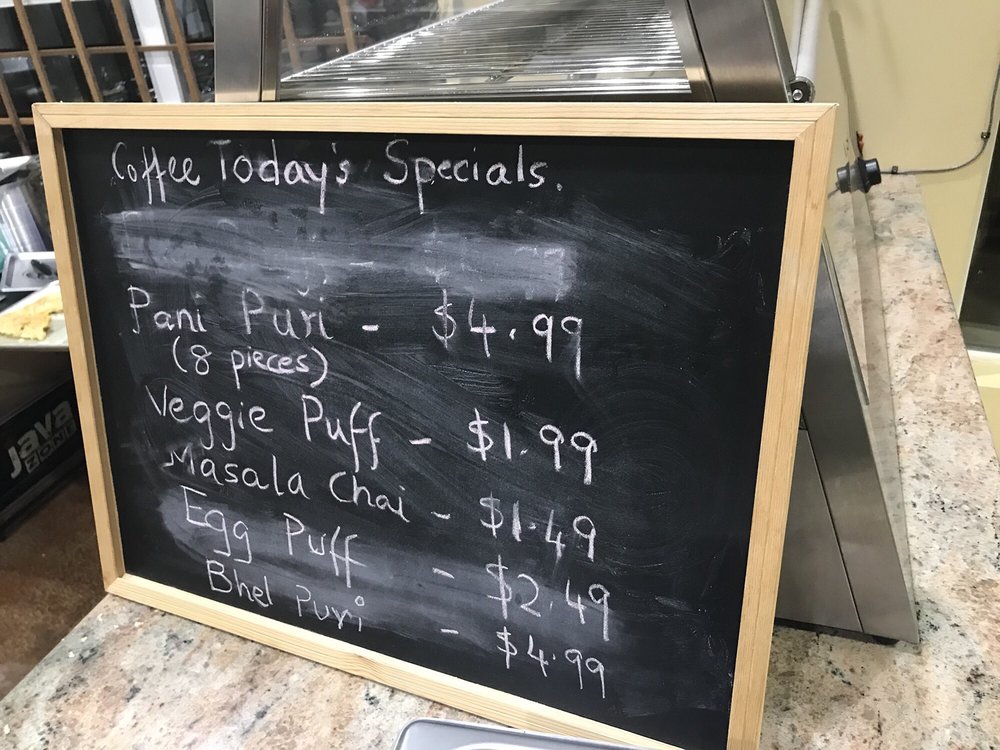 Coffee Today's Specials.
Pani Puri - $4.99
(8 pieces)
Veggie Puff - $1.99
Masala Chai - $1.49
Egg Puff - $2.49
Bhel Puri - $4.99
Java
ZONE